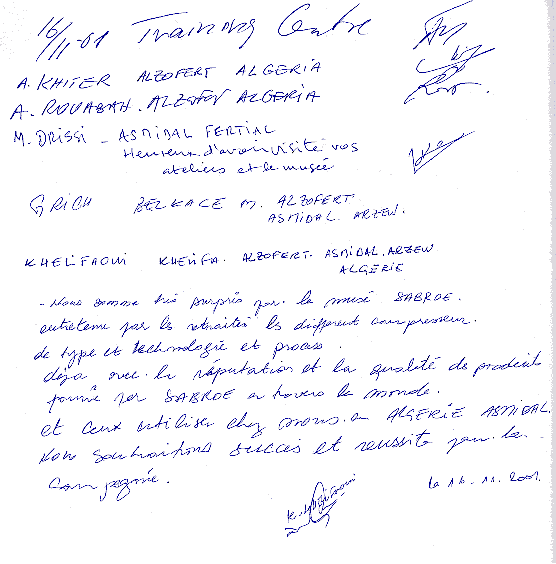 16/11-01 Training Centre
A. KHITER ALZOFERT ALGERIA
A. ROUABAH. ALZOFERT ALGERIA
M. DRISSI - ASMIDAL FERTIAL
Heureux d'avoir visité vos
ateliers et le musée
GRICH BELKACEM. ALZOFERT
ASMIDAL. ARZEW.
KHELIFAOUI KHELIFA. ALZOFERT. ASMIDAL. ARZEW
ALGERIE
- Nous somme très surpris par la musé SABROE.
entretenu par les retraités les different compresseur.
de type et technologie et process.
déja avec la réputation et la qualité de produits
fournie par SABROE a travers le monde.
et ceux utiliser chez nous en ALGERIE ASMIDAL.
Nous souhaitons succès et reussite pour la
compagnie.
le 16.11.2001.